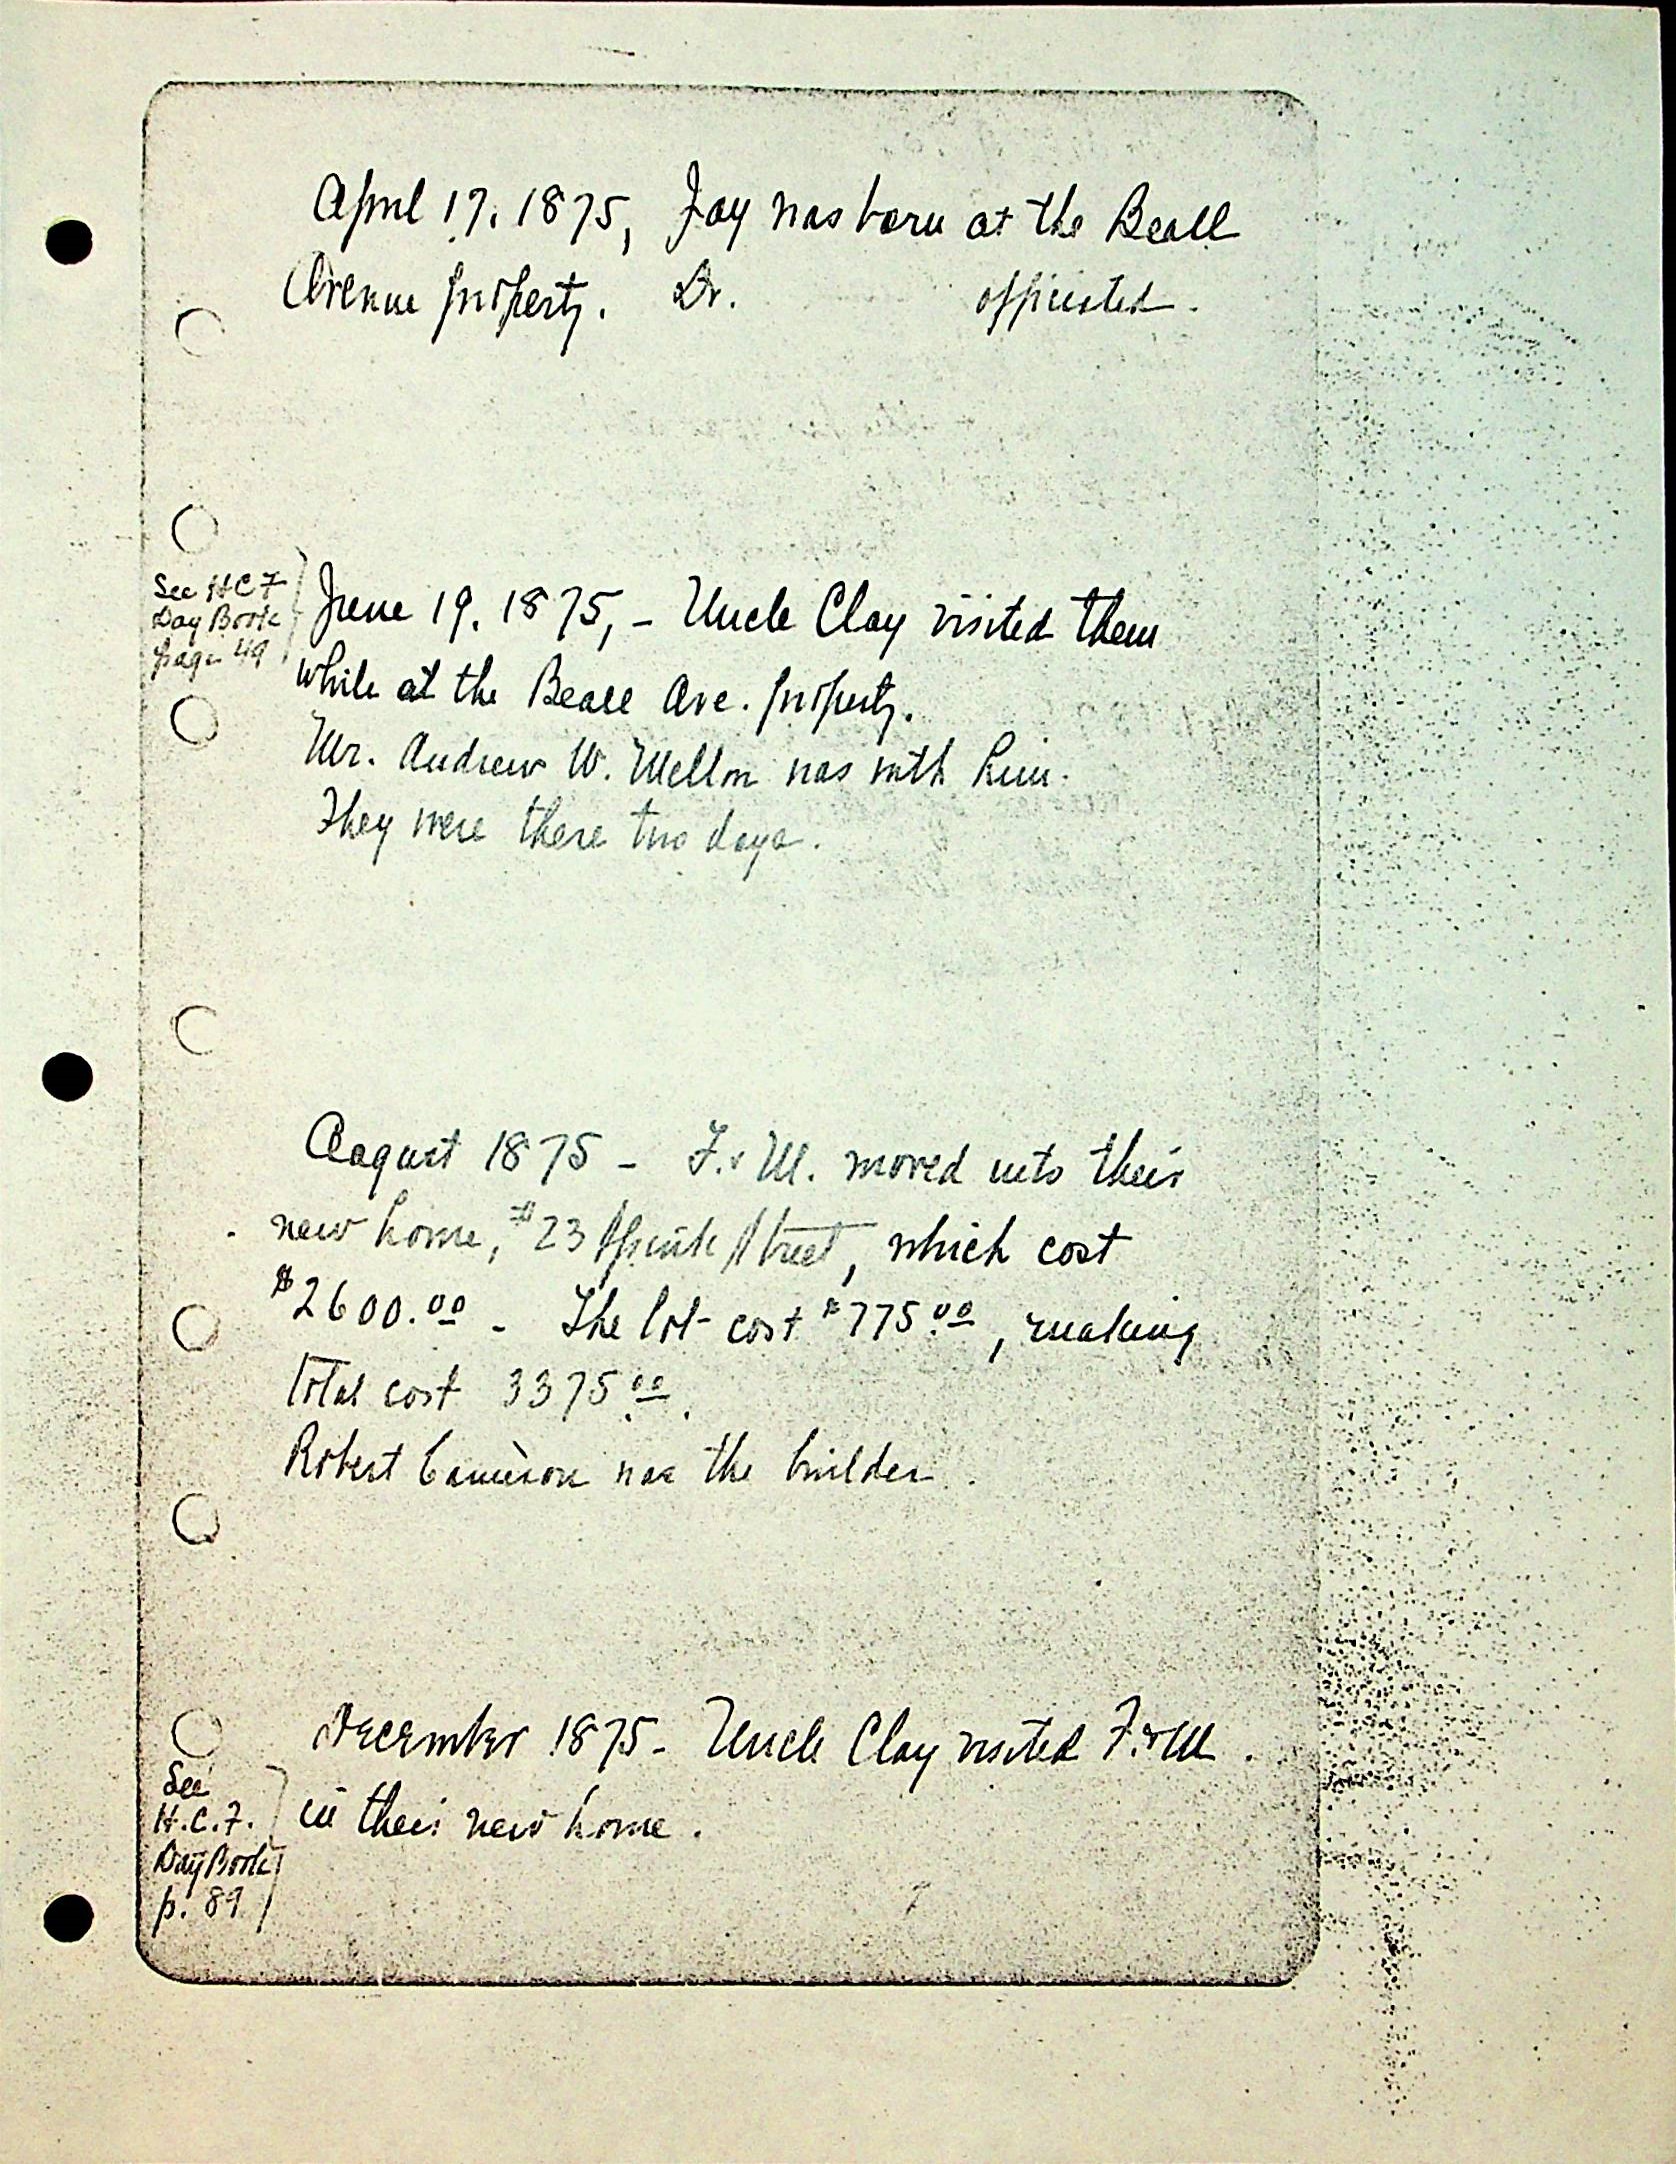 April 17. 1875, Jay was born at the Beall
Avenue property. Dr. officiated.
See H C F
Day Book
page 49
June 19. 1875, - Uncle Clay visited them
while at the Beall Ave. property.
Mr. Andrew W. Mellon was with him.
They were there two days.
August 1875 - F. & M. moved into their
new home, #23 Spink Street, which cost
$2600.00 - The lot cost $775.00, making
total cost 3375.00.
Robert Cameron was the builder.
December 1875 - Uncle Clay visited F. & M.
in their new home.
See
H.C.F.
Day Book
p. 89
7